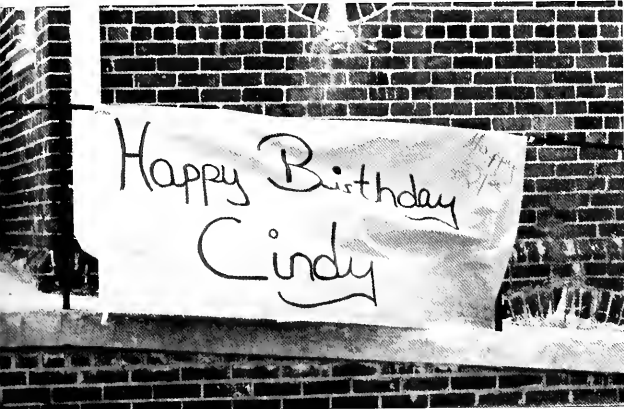 Happy Birthday
Cindy